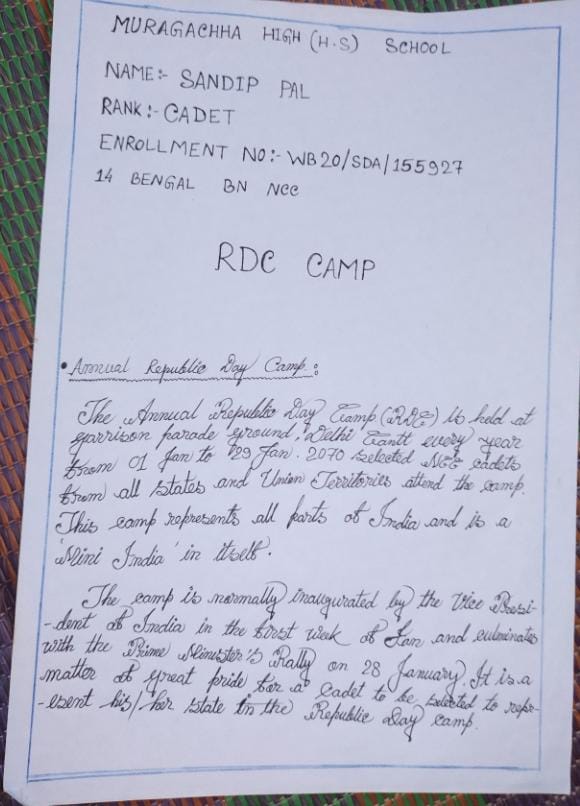 MURAGACHHA HIGH (H.S) SCHOOL
NAME:- SANDIP PAL
RANK:- CADET
ENROLLMENT NO:- WB20/SDA/155927
14 BENGAL BN NCC
RDC CAMP
• Annual Republic Day Camp :
The Annual Republic Day Camp (RDC) is held at
garrison parade ground, Delhi Cantt every year
from 01 Jan to 29 Jan. 2070 selected NCC cadets
from all states and Union Territories attend the camp.
This camp represents all parts of India and is a
'Mini India' in itself.
The camp is normally inaugurated by the Vice Presi-
-dent of India in the first week of Jan and culminates
with the Prime Minister's Rally on 28 January. It is a
matter of great pride for a cadet to be selected to repr-
-esent his/her state in the Republic Day camp.